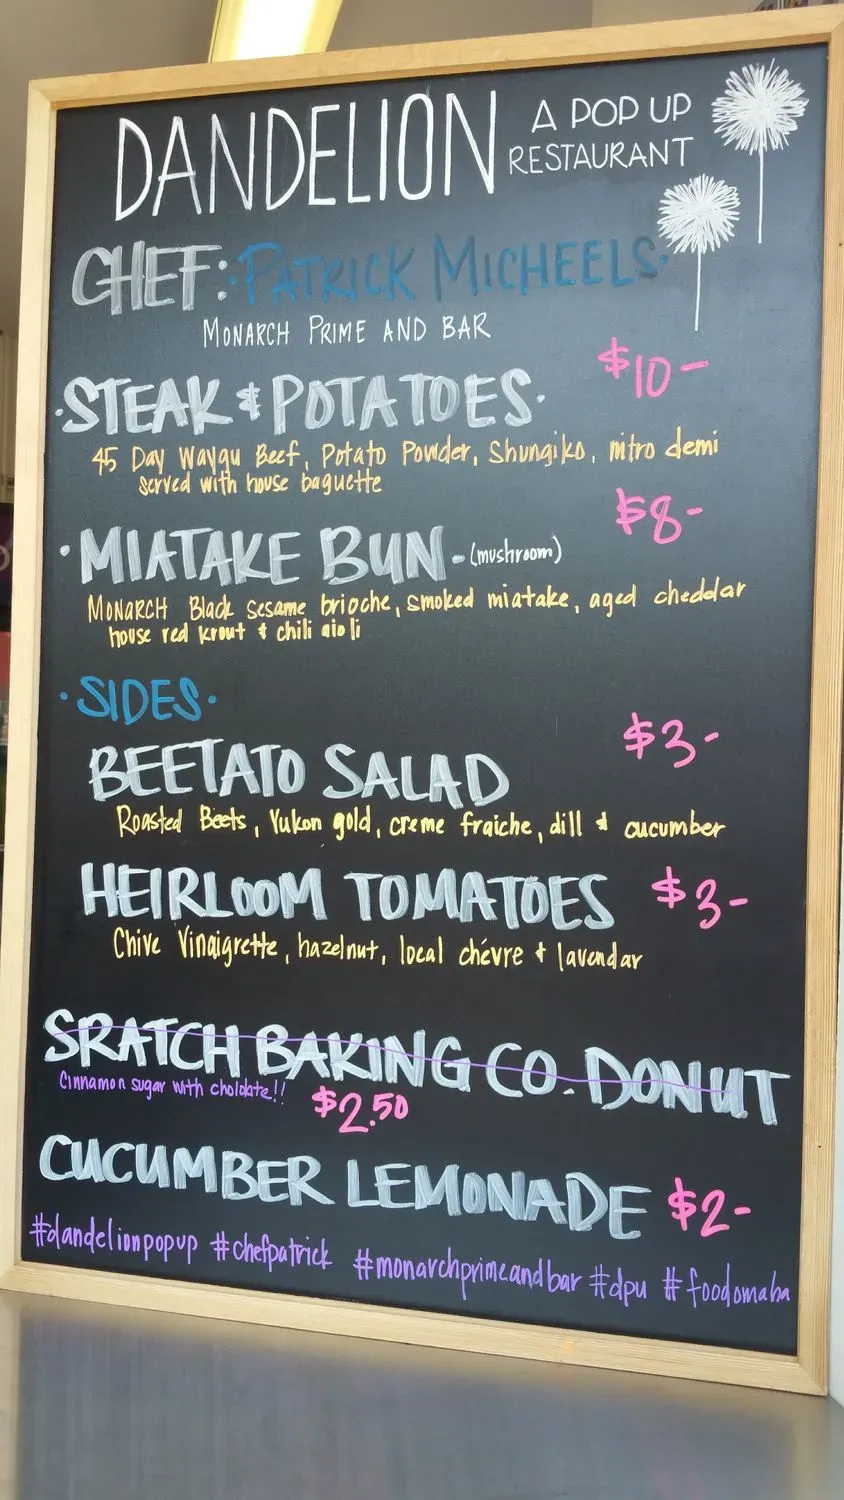 DANDELION A POP UP
RESTAURANT
CHEF: PATRICK MICHEELS
MONARCH PRIME AND BAR
$10-
STEAK & POTATOES
45 Day Waygu Beef, Potato Powder, Shungiko, nitro demi
served with house baguette
$8-
MIATAKE BUN - (mushroom)
MONARCH Black sesame brioche, smoked miatake, aged cheddar
house red krout & chili aioli
SIDES
$3-
BEETATO SALAD
Roasted Beets, Yukon gold, creme fraiche, dill & cucumber
HEIRLOOM TOMATOES $3-
Chive Vinaigrette, hazelnut, local chévre & lavendar
SRATCH BAKING CO. DONUT
Cinnamon sugar with cholotate!! $2.50
CUCUMBER LEMONADE $2-
#dandelionpopup #chefpatrick #monarchprimeandbar #dpu #foodomaha